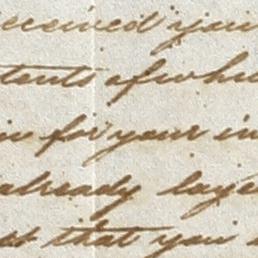 received you
tents of whi
in for your in
already laye
that you